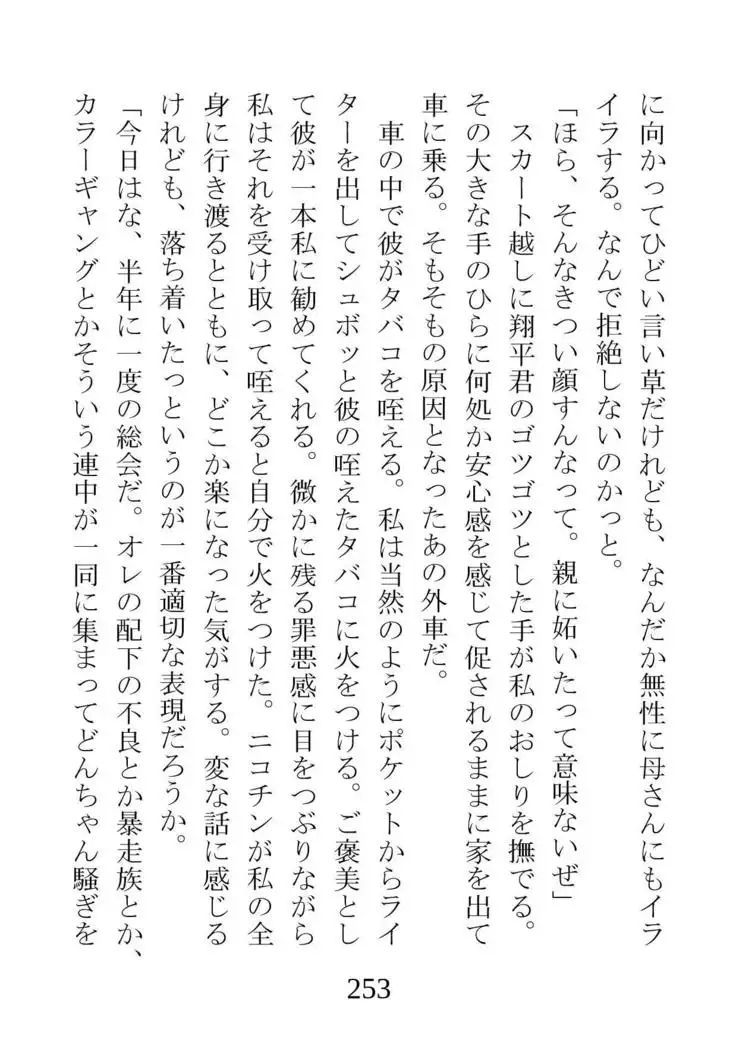 に向かってひどい言い草だけれども、なんだか無性に母さんにもイラ
イラする。なんで拒絶しないのかっと。
「ほら、そんなきつい顔すんなって。親に妬いたって意味ないぜ」
スカート越しに翔平君のゴツゴツとした手が私のおしりを撫でる。
その大きな手のひらに何処か安心感を感じて促されるままに家を出て
車に乗る。そもそもの原因となったあの外車だ。
車の中で彼がタバコを咥える。私は当然のようにポケットからライ
ターを出してシュボッと彼の咥えたタバコに火をつける。ご褒美とし
て彼が一本私に勧めてくれる。微かに残る罪悪感に目をつぶりながら
私はそれを受け取って咥えると自分で火をつけた。ニコチンが私の全
身に行き渡るとともに、どこか楽になった気がする。変な話に感じる
けれども、落ち着いたっというのが一番適切な表現だろうか。
「今日はな、半年に一度の総会だ。オレの配下の不良とか暴走族とか、
カラーギャングとかそういう連中が一同に集まってどんちゃん騒ぎを
253